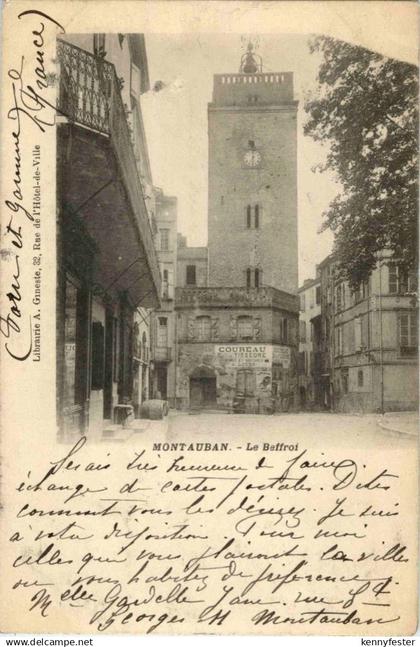 (Tarn et Garonne) (France)
Librairie A. Gineste, 32, Rue de l'Hôtel-de-Ville
COUREAU
TISSEUR
MONTAUBAN. - Le Beffroi
Serais très heureuse de faire
échange de cartes postales. Dites
comment vous les désirez. Je suis
à votre disposition. Pour moi
celles que vous aimeront la villes
ou vous habitez de préference.
Melle Gardelle Jane. rue St
Georges 11 Montauban
kennyfester